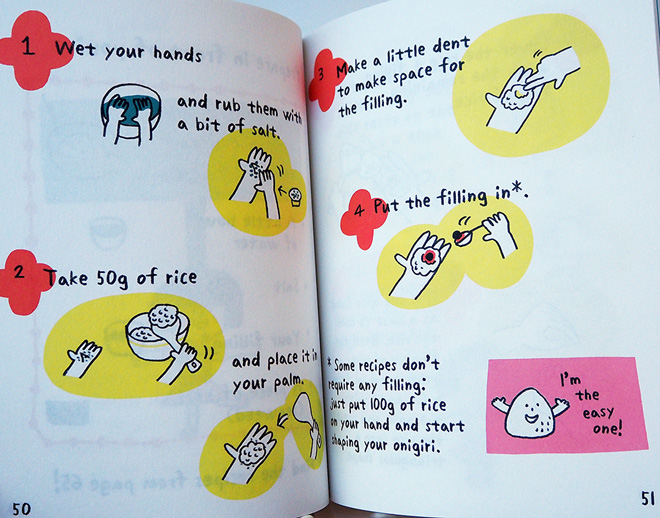 1 Wet your hands
and rub them with
a bit of salt.
2 Take 50g of rice
and place it in
your palm.
50
3 Make a little dent
to make space for
the filling.
4 Put the filling in*.
* Some recipes don't
require any filling:
just put 100g of rice
on your hand and start
shaping your onigiri.
I'm
the
easy
one!
51